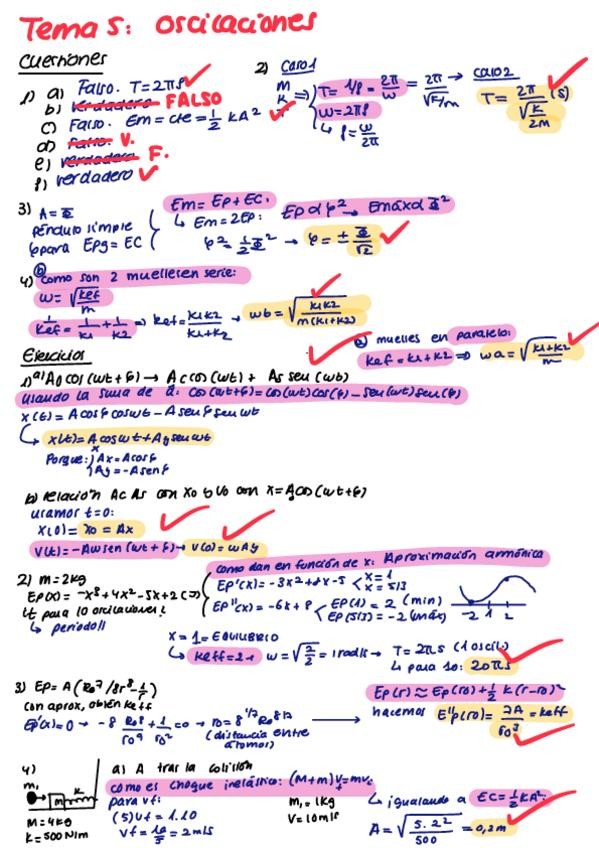 Tema 5: oscilaciones
Cuestiones
1) a) Falso. T=2πs
b) verdadero FALSO
c) Falso. Em = cte = 1/2 KA²
d) falso. V.
e) verdadero F.
f) verdadero
2) caso 1
m
K
T = 1/f = 2π/ω = 2π/√K/m → caso 2
T = 2π/√K/2m (s)
ω=2πf
↳ f = ω/2π
3) A = Φ
péndulo simple
φ para Epg = EC
Em = Ep + EC.
↳ Em = 2Ep:
Ep α φ² → Emáx α Φ²
φ² = 1/2 Φ² → φ = ± Φ/√2
4) b) como son 2 muelles en serie:
ω = √Kef/m
1/Kef = 1/K1 + 1/K2 ⇒ Kef = K1K2/K1+K2 → ωb = √K1K2/m(K1+K2)
a) muelles en paralelo:
Kef = K1+K2 ⇒ ωa = √K1+K2/m
Ejercicios
1) a) A0 cos (ωt+δ) → Ac cos (ωt) + As sen (ωt)
usando la suma de a: cos(ωt+δ) = cos(ωt)cos(δ) - sen(ωt)sen(δ)
x(t) = A cosδ cosωt - A senδ senωt
↳ x(t) = Ax cosωt + Ay senωt
Porque: Ax = A cosδ
Ay = -A senδ
b) relación Ac As con x0 y v0 con x = A0 cos(ωt+δ)
usamos t=0:
x(0) = x0 = Ax
V(t) = -Aω sen (ωt+δ) → v(0) = ωAy
2) m = 2kg
Ep(x) = -x³ + 4x² - 5x + 2 (J)
¿t para 10 oscilaciones?
↳ periodo!!
como dan en función de x: Aproximación armónica
Ep'(x) = -3x² + 8x - 5 < x=1
x = 5/3
Ep''(x) = -6x + 8 < Ep(1) = 2 (min)
Ep(5/3) = -2 (máx)
-2 1 2
x = 1 = EQUILIBRIO
↳ Keff = 2 → ω = √2/2 = 1 rad/s → T = 2πs (1 oscil.)
↳ para 10: 20πs
3) Ep = A (R0⁷/8r⁸ - 1/r)
con aprox, obtén Keff
Ep'(x) = 0 → -8 R0⁸/r0⁹ + 1/r0² = 0 → r0 = 8^1/7 R0^8/7
(distancia entre átomos)
Ep(r) ≈ Ep(r0) + 1/2 K (r-r0)²
hacemos E''p(r0) = 7A/r0³ = Keff
4)
m1
M
K
M = 4kg
K = 500 N/m
a) A tras la colisión
como es choque inelástico: (M+m)Vf = mv.
para vf:
(5)Vf = 1·10
Vf = 10/5 = 2 m/s
m1 = 1kg
V = 10 m/s
↳ igualando a EC = 1/2 KA²
A = √5·2²/500 = 0,2m